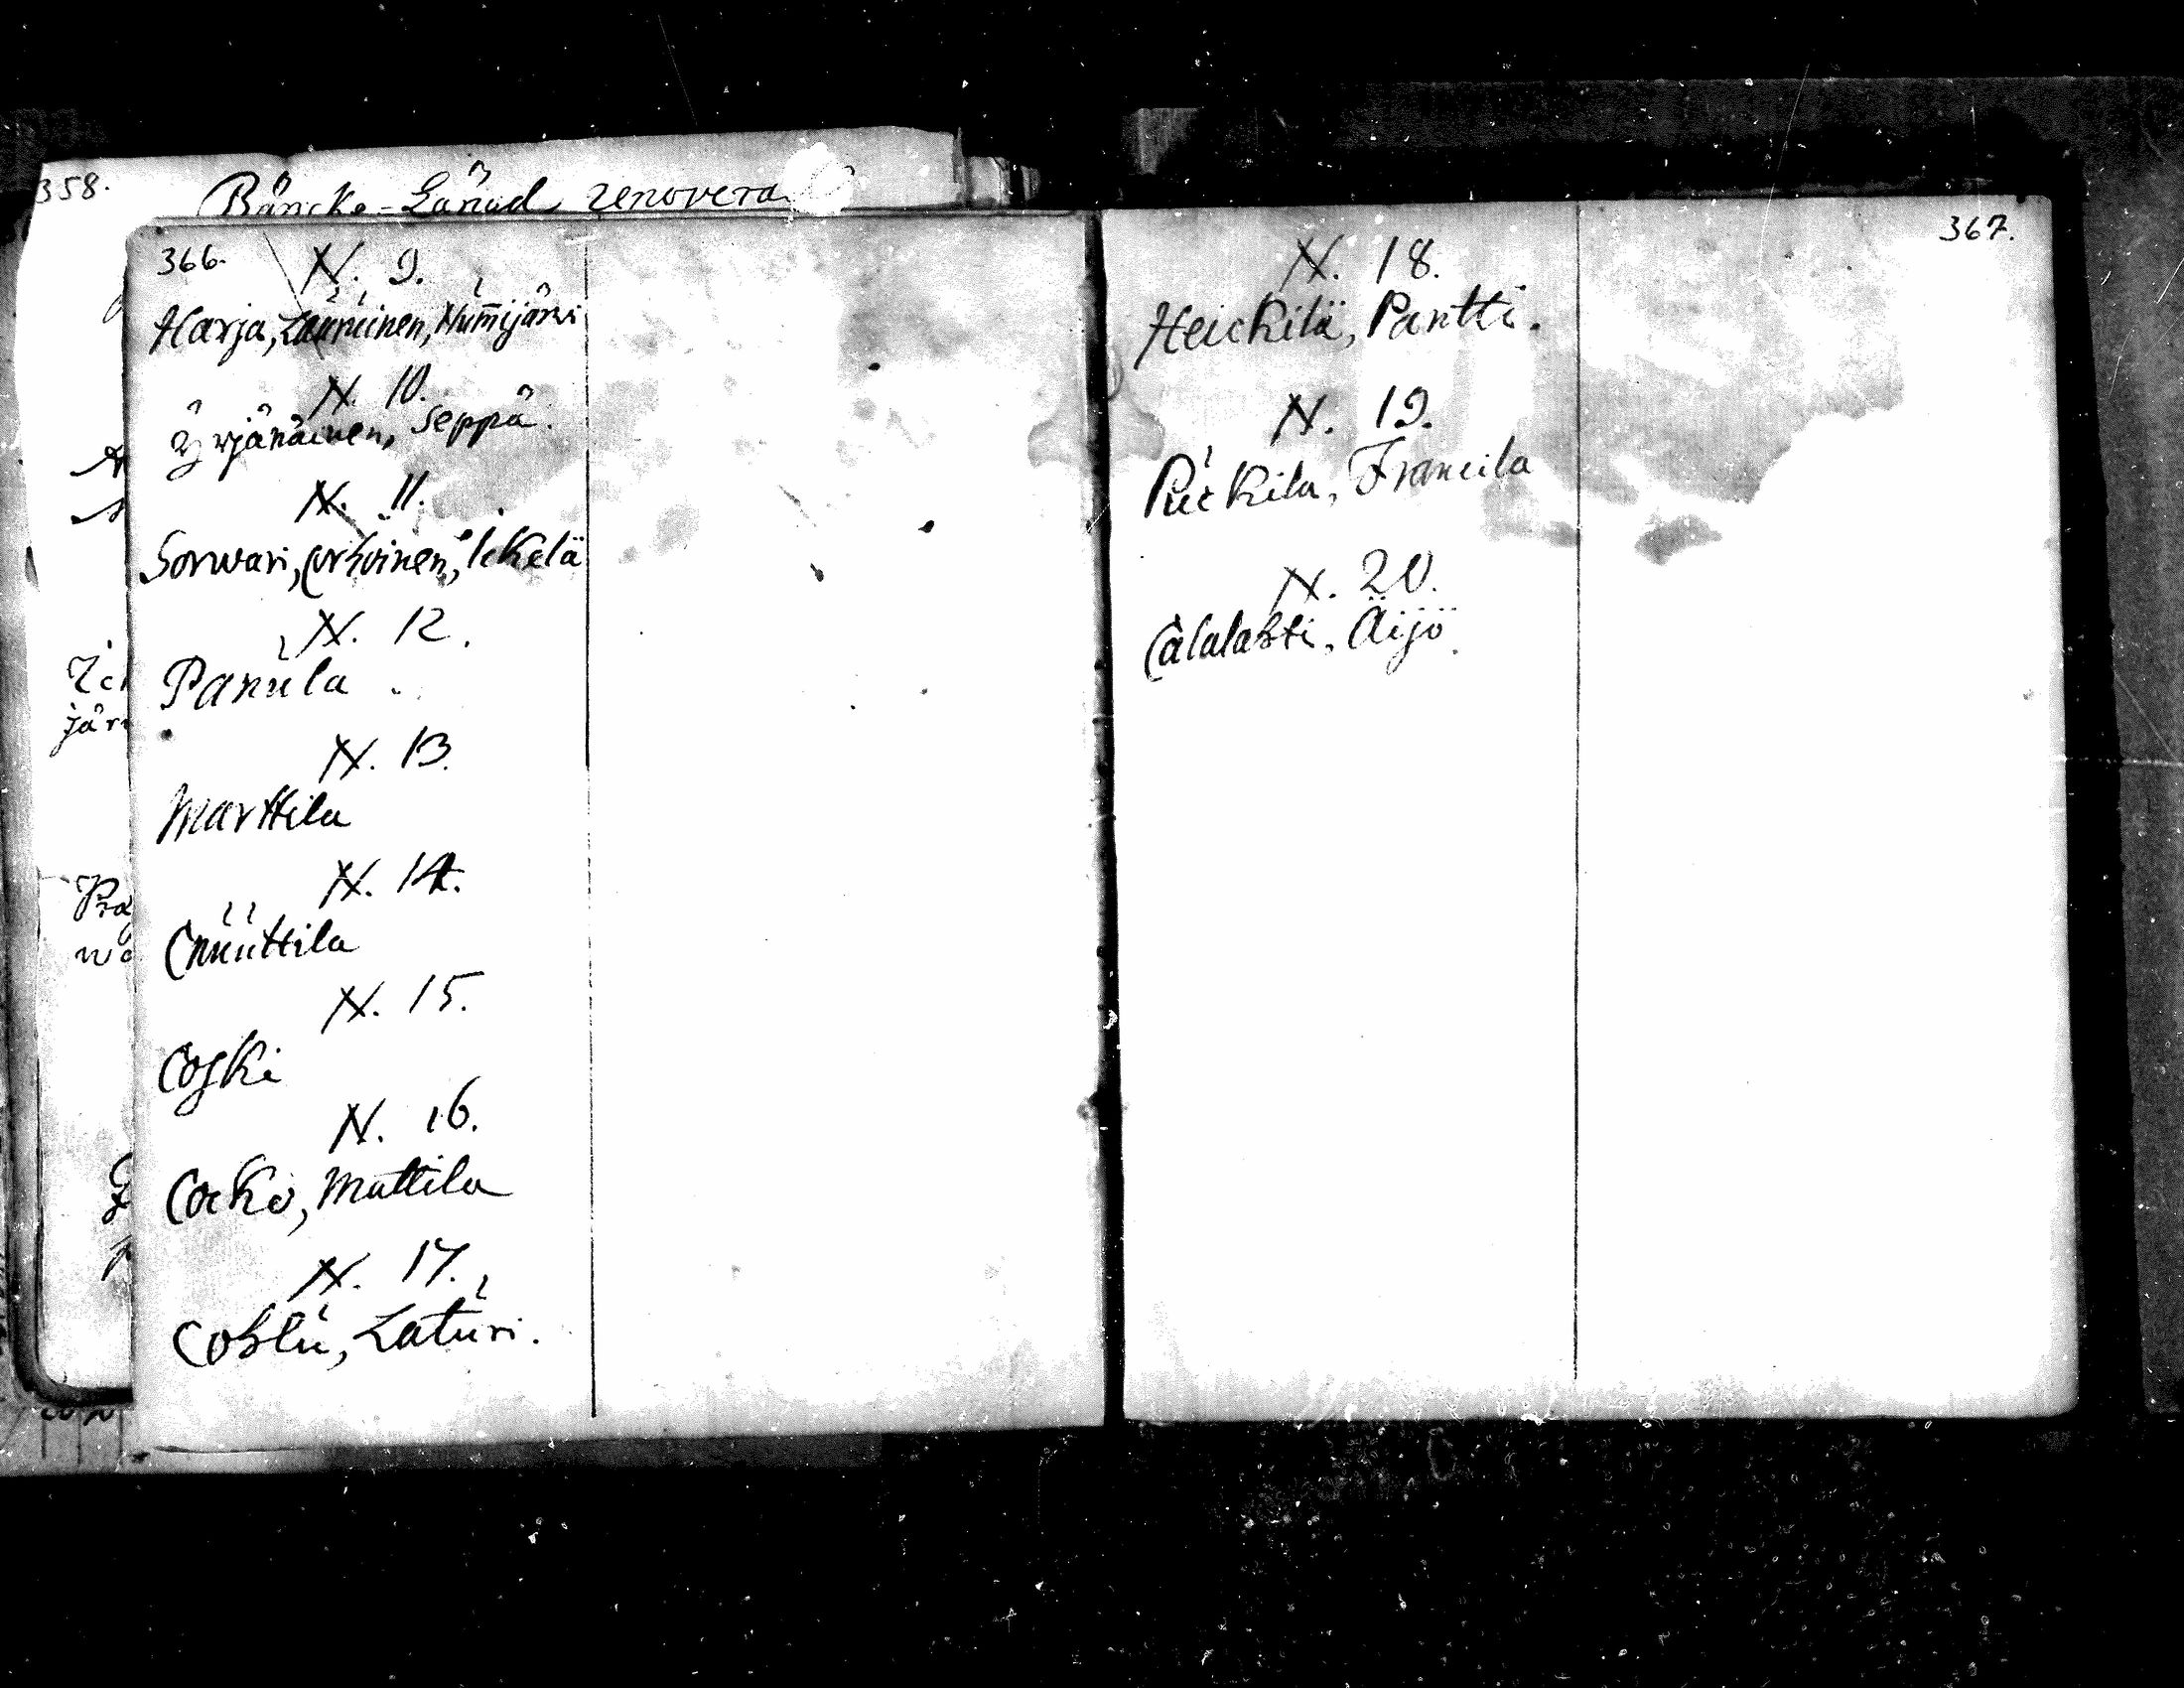 358.
Bäncke-Länud renovera
366.
N. 9.
Harja, Lauruinen, Nummijärwi
N. 10.
Yrjänäinen, Seppä.
N. 11.
Sorwari, Corhoinen, Ickelä
N. 12.
Panula
N. 13.
Marttila
N. 14.
Cnuuttila
N. 15.
Coski
N. 16.
Cocko, Mattila
N. 17.
Cohlu, Laturi.
367.
N. 18.
Heickilä, Pantti.
N. 19.
Puckila, Francila
N. 20.
Calalahti, Äijö.